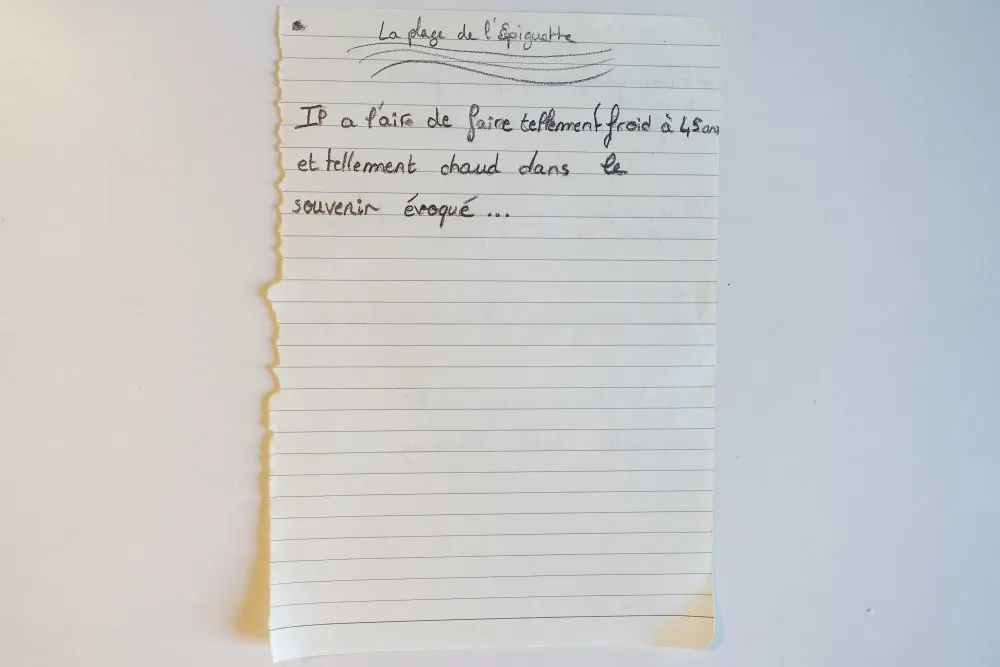 La plage de l'Epiguette
Il a l'aire de faire tellement froid à 45 ans
et tellement chaud dans le
souvenir évoqué ...